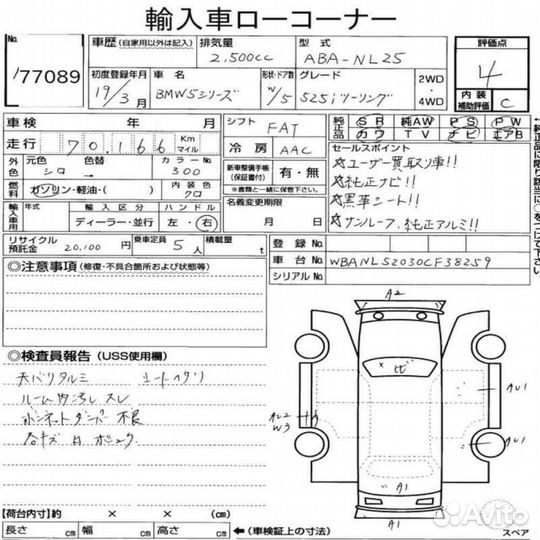 輸入車ローコーナー
No.
77089
車歴 (自家用以外は記入)
排気量
2,500cc
型式
ABA-NL25
初度登録年月
19/3月
車名
BMW5シリーズ
形状・ドア数
W/5
グレード
525iツーリング
2WD
・
4WD
評価点
4
内装
補助評価
C
車検 年 月
走行 70,166 Km マイル
シフト FAT
冷房 AAC
純正品
SR 純AW PS PW
カワ TV ナビ エアB
外色
元色 色替 カラーNo.
シロ → 300
燃料
ガソリン・軽油・( )
内装色
クロ
新車整備手帳
(保証書付)
有・無
※書類と一緒に保管して下さい。
セールスポイント
☆ユーザー買取り車!!
☆純正ナビ!!
☆黒革シート!!
☆サンルーフ、純正アルミ!!
輸入車用
年式 輸入区分 ハンドル
ディーラー・並行 左・右
名義変更期限
月 日
リサイクル
預託金
20,100 円
乗車定員 5 人
積載量 t
登録No.
車台No. WBANL52030CF38259
シリアルNo.
◎注意事項 (修復・不具合箇所および状態等)
◎検査員報告 (USS使用欄)
天バリタルミ シートヘタリ
ルーム内汚レ スレ
ボンネットダンパー不良
A2
ヒ
AU1
W3
AU1
A1
A1
【荷台内寸】約 × × (cm)
長さ cm 幅 cm 高さ cm
(車検証上の寸法)
スペア
Avito